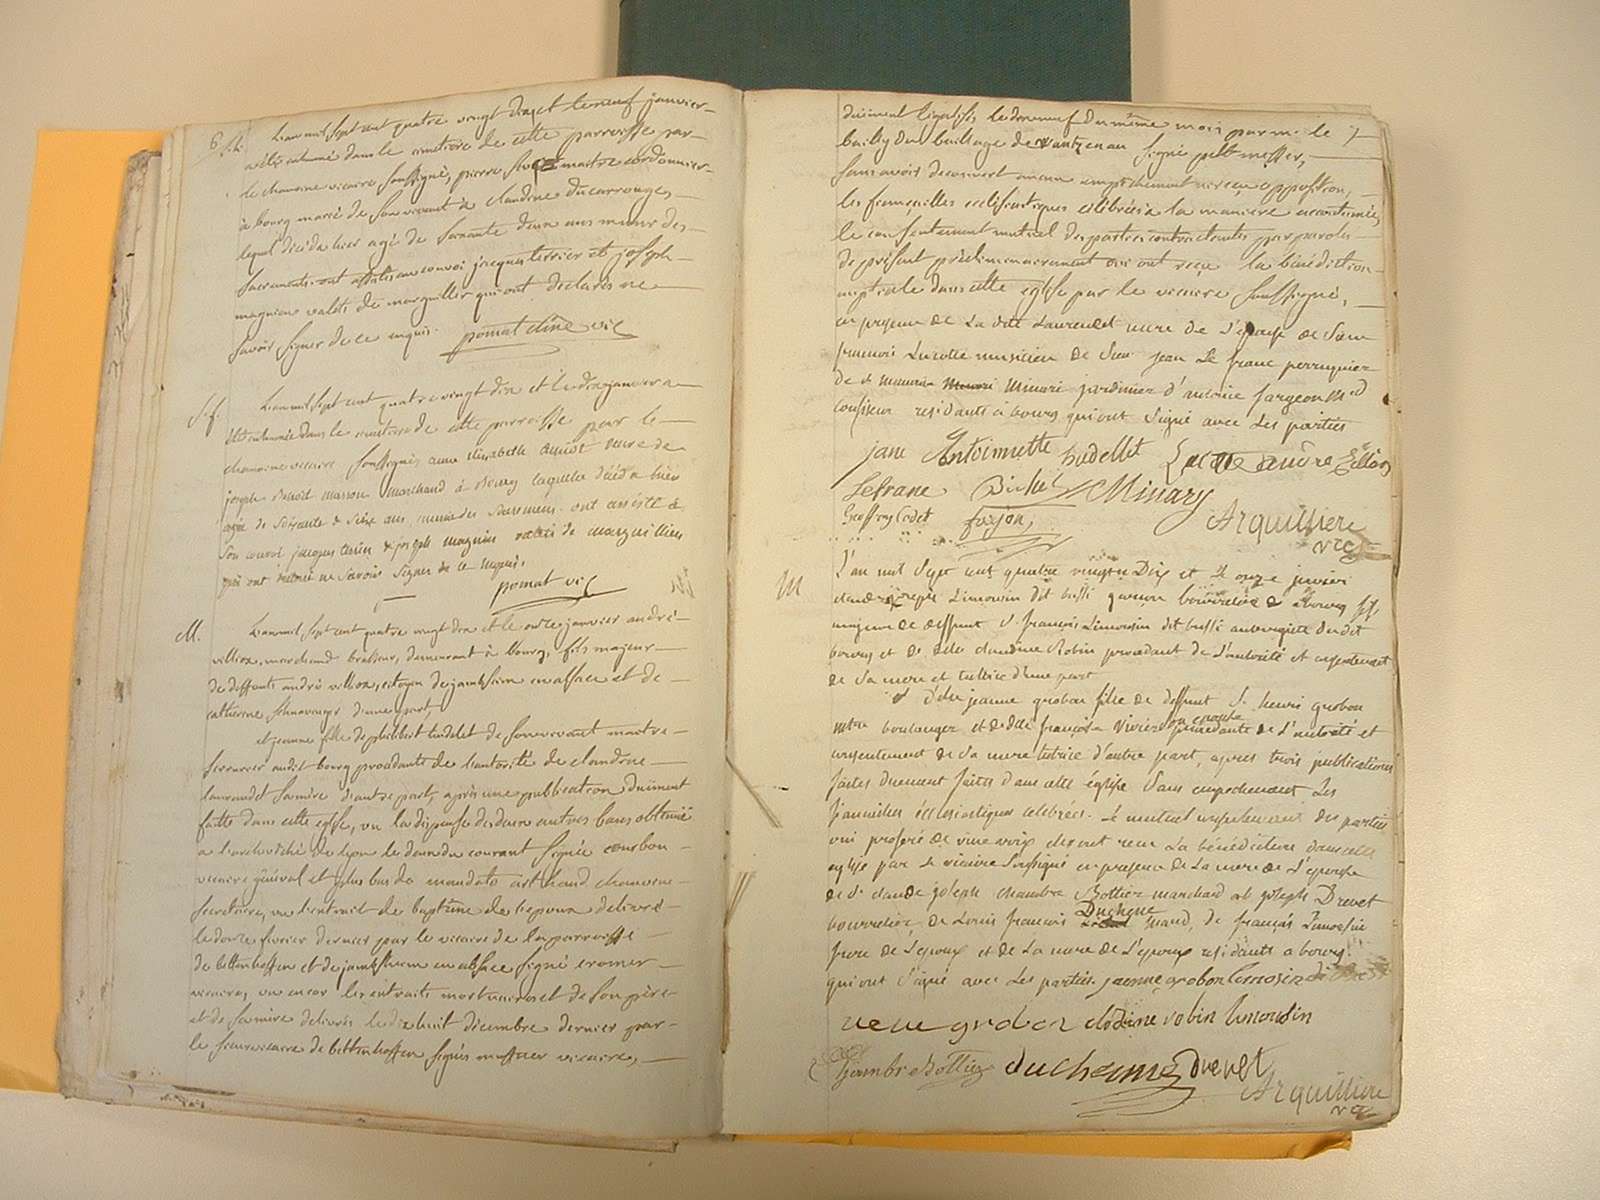 6
L'an mil sept cent quatre vingt dix et le neuf janvier
a été inhumé dans le cimetiere de cette parroisse par
le chanoine vicaire soussigné, pierre maitre cordonnier
à bourg marié de son vivant à claudine ducarrouge,
lequel décéda hier agé de soixante deux ans muni des
sacrements. ont assisté au convoi jacques terrier et joseph
magnien valets de marguillier qui ont déclarés ne
savoir signer de ce enquis.
pomat vic
S.f.
L'an mil sept cent quatre vingt dix et le dix janvier a
été inhumée dans le cimetiere de cette parroisse par le
chanoine vicaire soussigné, anne elisabeth veuve de
joseph benoit masson marchand à bourg laquelle décéda hier
agée de soixante & seize ans, munie des sacremens. ont assisté à
son convoi jacques terrier & joseph magnien valets de marguillier
qui ont declaré ne savoir signer de ce requis.
pomat vic
M.
L'an mil sept cent quatre vingt dix et le onze janvier andré
villiox, marchand brasseur, demeurant à bourg, fils majeur
de deffunts andré villiox, citoyen de jambsheim en alsace et de
catherine d'une part,
et jeanne fille de philibert hudelet de son vivant maitre
serrurier audit bourg procédante de l'autorité de claudine
laurendet sa mère d'autre part, après une publication duëment
faitte dans cette eglise, vu la dispense des deux autres bans obtenuë
a l'archevêché de lyon le deux du courant signée courbon
vicaire général et plus bas de mandato arthaud chanoine
secretaire, vu l'extrait de baptême de l'epoux delivré
le douze fevrier dernier par le vicaire de la parroisse
de bettenhoffen et de jambsheim en alsace signé cromer
vicaire, vu encor les extraits mortuaires et de son père
et de sa mère delivrés le dix huit décembre dernier par
le sieur vicaire de bettenhoffen, signés messner vicaire,
7
duëment légalisés le dixneuf du même mois par mr. le
bailly du bailliage de vantzenau signé
sans avoir decouvert aucun empêchement ni reçu opposition,
les fiançailles ecclésiastiques célébrées à la manière accoutumée,
le consentement mutuel des parties contractantes par paroles
de présent préliminairement oui ont reçu la bénédiction
nuptiale dans cette eglise par le vicaire soussigné,
en presence de la dite Laurendet mere de l'epouse de sieur
francois Lucotte musicien de sieur jean Le franc perruquier
de Minari jardinier d'antoine fargeon md
confiseur residants à bourg qui ont signé avec les parties
jane Antoinette hudellet andre villiox
Lefranc Bichel Minary
Geoffray Cadet farjon Arquilliere
vic
M
L'an mil sept cent quatre vingt Dix et le onze janvier
claude joseph Limousin dit bussi garcon bourrelier à Bourg fils
majeur de deffunt Sr. françois Limousin dit bussi aubergiste dudit
bourg et de delle claudine Robin procedant de l'autorité et consentement
de sa mere et tutrice d'une part
et d'elle jeanne grobon fille de deffunt Sr. henri grobon
mtre boulanger et de delle françoise Viviere procedante de l'autorité et
consentement de sa mere tutrice d'autre part, après trois publications
faites duement faites dans cette église sans empechement Les
fiancailles écclesiastiques celebrées. Le mutuel consentement des parties
oui proferé de vive voix elles ont recu La bénédiction dans cette
eglise par le vicaire soussigné en presence de La mere de l'epouse
de Sr. claude joseph chambre Bottier marchand et joseph Drevet
bourrelier, de Louis françois Duchene mand, de françois Limosin
frere de l'epoux et de La mere de l'epoux residants a bourg.
qui ont signé avec les parties. jeanne grobon Limosin
veuve grobon clodine robin limousin
Chambre Bottier duchesne Drevet
Arquilliere
vic